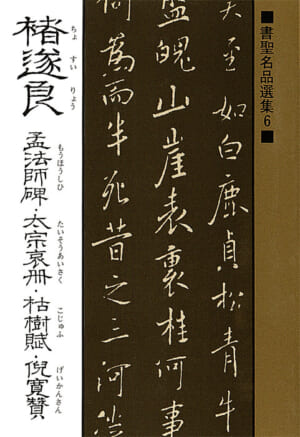 ■書聖名品選集6■
矣至如白鹿貞松青牛
盤魄山崖表裏桂何事
何為而半死昔之三河徙
褚遂良
ちょ すい りょう
孟法師碑・太宗哀冊・枯樹賦・倪寛贊
もうほうしひ たいそうあいさく こじゅふ げいかんさん